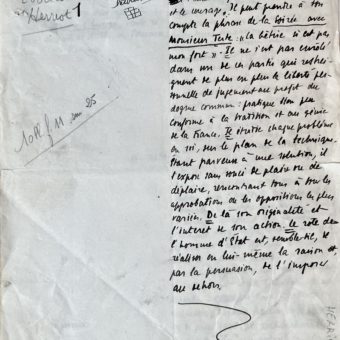 Herriot 1
10lll/11 sur 25
et le courage. Il peut prendre à son
compte la phrase de la Soirée avec
Monsieur Teste : « la bêtise n'est pas
mon fort ». Il ne s'est pas enrôlé
dans un de ces partis qui restrei-
gnent de plus en plus la liberté per-
sonnelle de jugement au profit du
dogme commun : pratique bien peu
conforme à la tradition et au génie
de la France. Il étudie chaque problème
en soi, sur le plan de la technique.
Étant parvenu à une solution, il
l'expose sans souci de plaire ou de
déplaire, rencontrant tour à tour les
approbations ou les oppositions les plus
variées. De là son originalité et
l'intérêt de son action. Le rôle de
l'homme d'État est, semble-t-il, de
réaliser en lui-même la raison et,
par la persuasion, de l'imposer
au dehors.
HERRI